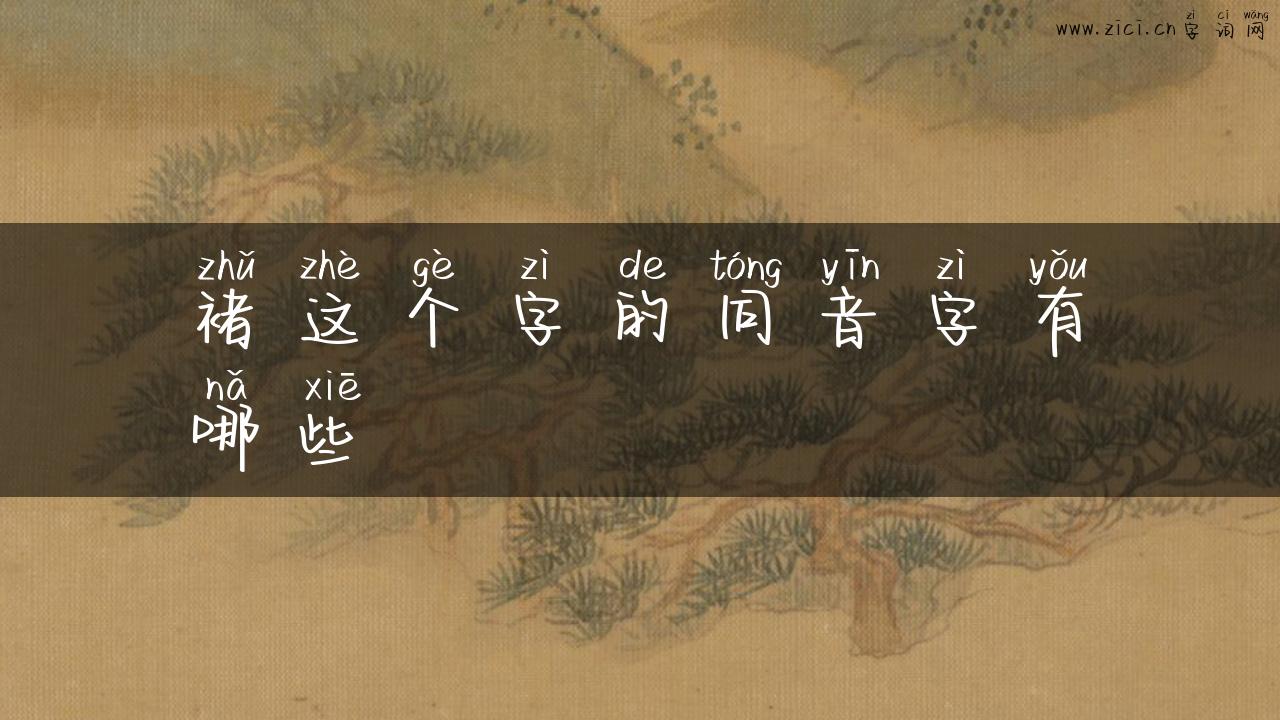 zì cí wǎng
www.zici.cn 字 词 网
zhǔ zhè gè zì de tóng yīn zì yǒu
褚 这 个 字 的 同 音 字 有
nǎ xiē
哪 些